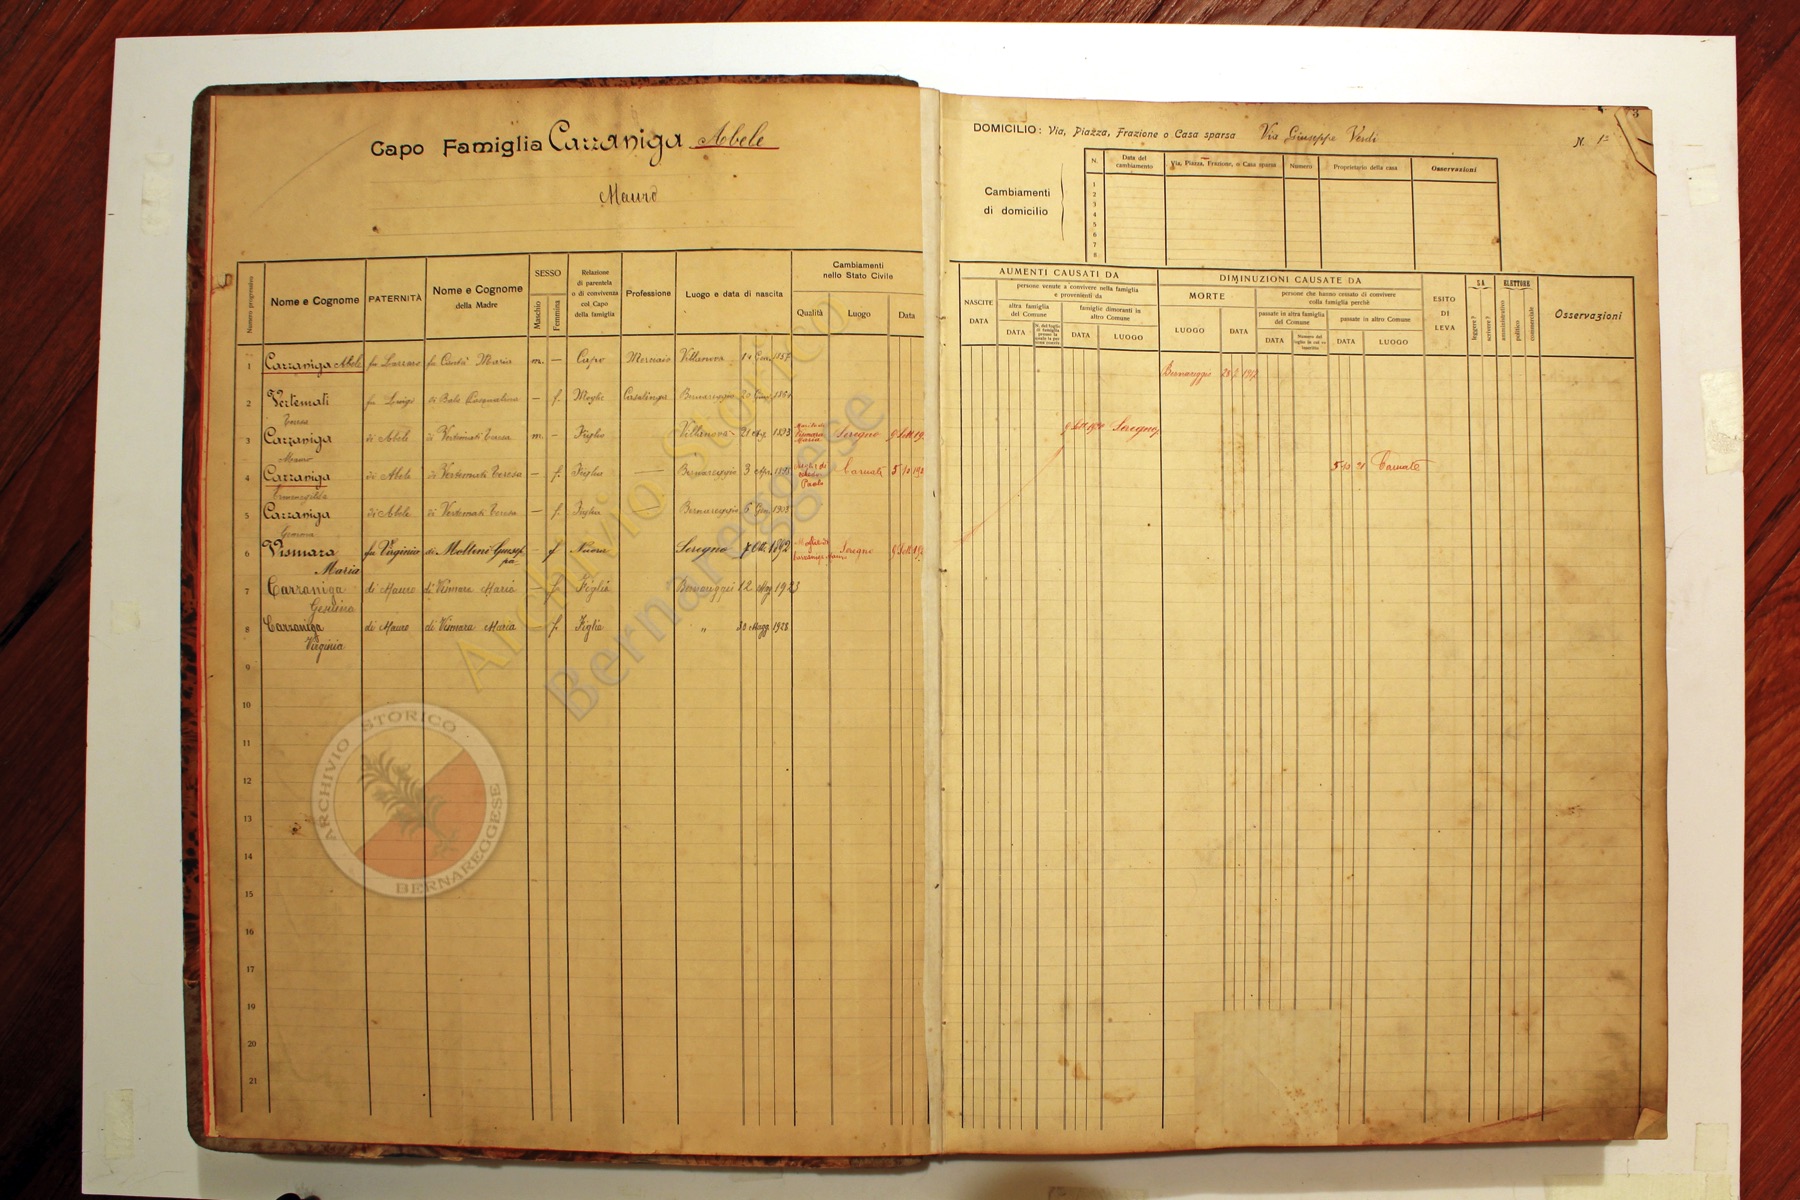 Capo Famiglia Carzaniga Abele
Mauro
Numero progressivo
Nome e Cognome
PATERNITÀ
Nome e Cognome
della Madre
SESSO
Maschio
Femmina
Relazione
di parentela
o di convivenza
col Capo
della famiglia
Professione
Luogo e data di nascita
Cambiamenti
nello Stato Civile
Qualità
Luogo
Data
1 Carzaniga Abele fu Lazzaro fu Cantù Maria m. — Capo Villanova
2 Vertemati fu Luigi — f. Moglie Casalinga Bernareggio
Teresa
3 Carzaniga di Abele di Vertemati Teresa m. — Figlio Villanova 1893 Marito di Vismara Maria Seregno 9 Sett 19
Mauro
4 Carzaniga di Abele di Vertemati Teresa — f. Figlia — Bernareggio 3 Paolo Carnate 5
Ermenegilda
5 Carzaniga di Abele di Vertemati Teresa — f. Figlia — Bernareggio 6
6 Vismara fu Virginio di Mollini — f Nuora Seregno 7 Ott. 1892 Moglie di Carzaniga Mauro Seregno 9 Sett
Maria
7 Carzaniga di Mauro di Vismara Maria — f. Figlia Bernareggio 12 1923
Gesuina
8 Carzaniga di Mauro di Vismara Maria — f. Figlia „ 30 Magg. 1928
Virginia
9
10
11
12
13
14
15
16
17
19
20
21
DOMICILIO: Via, Piazza, Frazione o Casa sparsa Via Giuseppe Verdi
N. 1
3
Cambiamenti
di domicilio
N.
Data del
cambiamento
Via, Piazza, Frazione, o Casa sparsa
Numero
Proprietario della casa
Osservazioni
1
2
3
4
5
6
7
8
AUMENTI CAUSATI DA
NASCITE
DATA
persone venute a convivere nella famiglia
e provenienti da
altra famiglia
del Comune
DATA
famiglie dimoranti in
altro Comune
DATA
LUOGO
DIMINUZIONI CAUSATE DA
MORTE
LUOGO
DATA
persone che hanno cessato di convivere
colla famiglia perchè
passate in altra famiglia
del Comune
DATA
passate in altro Comune
DATA
LUOGO
ESITO
DI
LEVA
SA
leggere ?
scrivere ?
ELETTORE
amministrativo
politico
commerciale
Osservazioni
Bernareggio 28
9 Sett. Seregno
5 Carnate
Archivio Storico
Bernareggese
ARCHIVIO STORICO
BERNAREGGESE